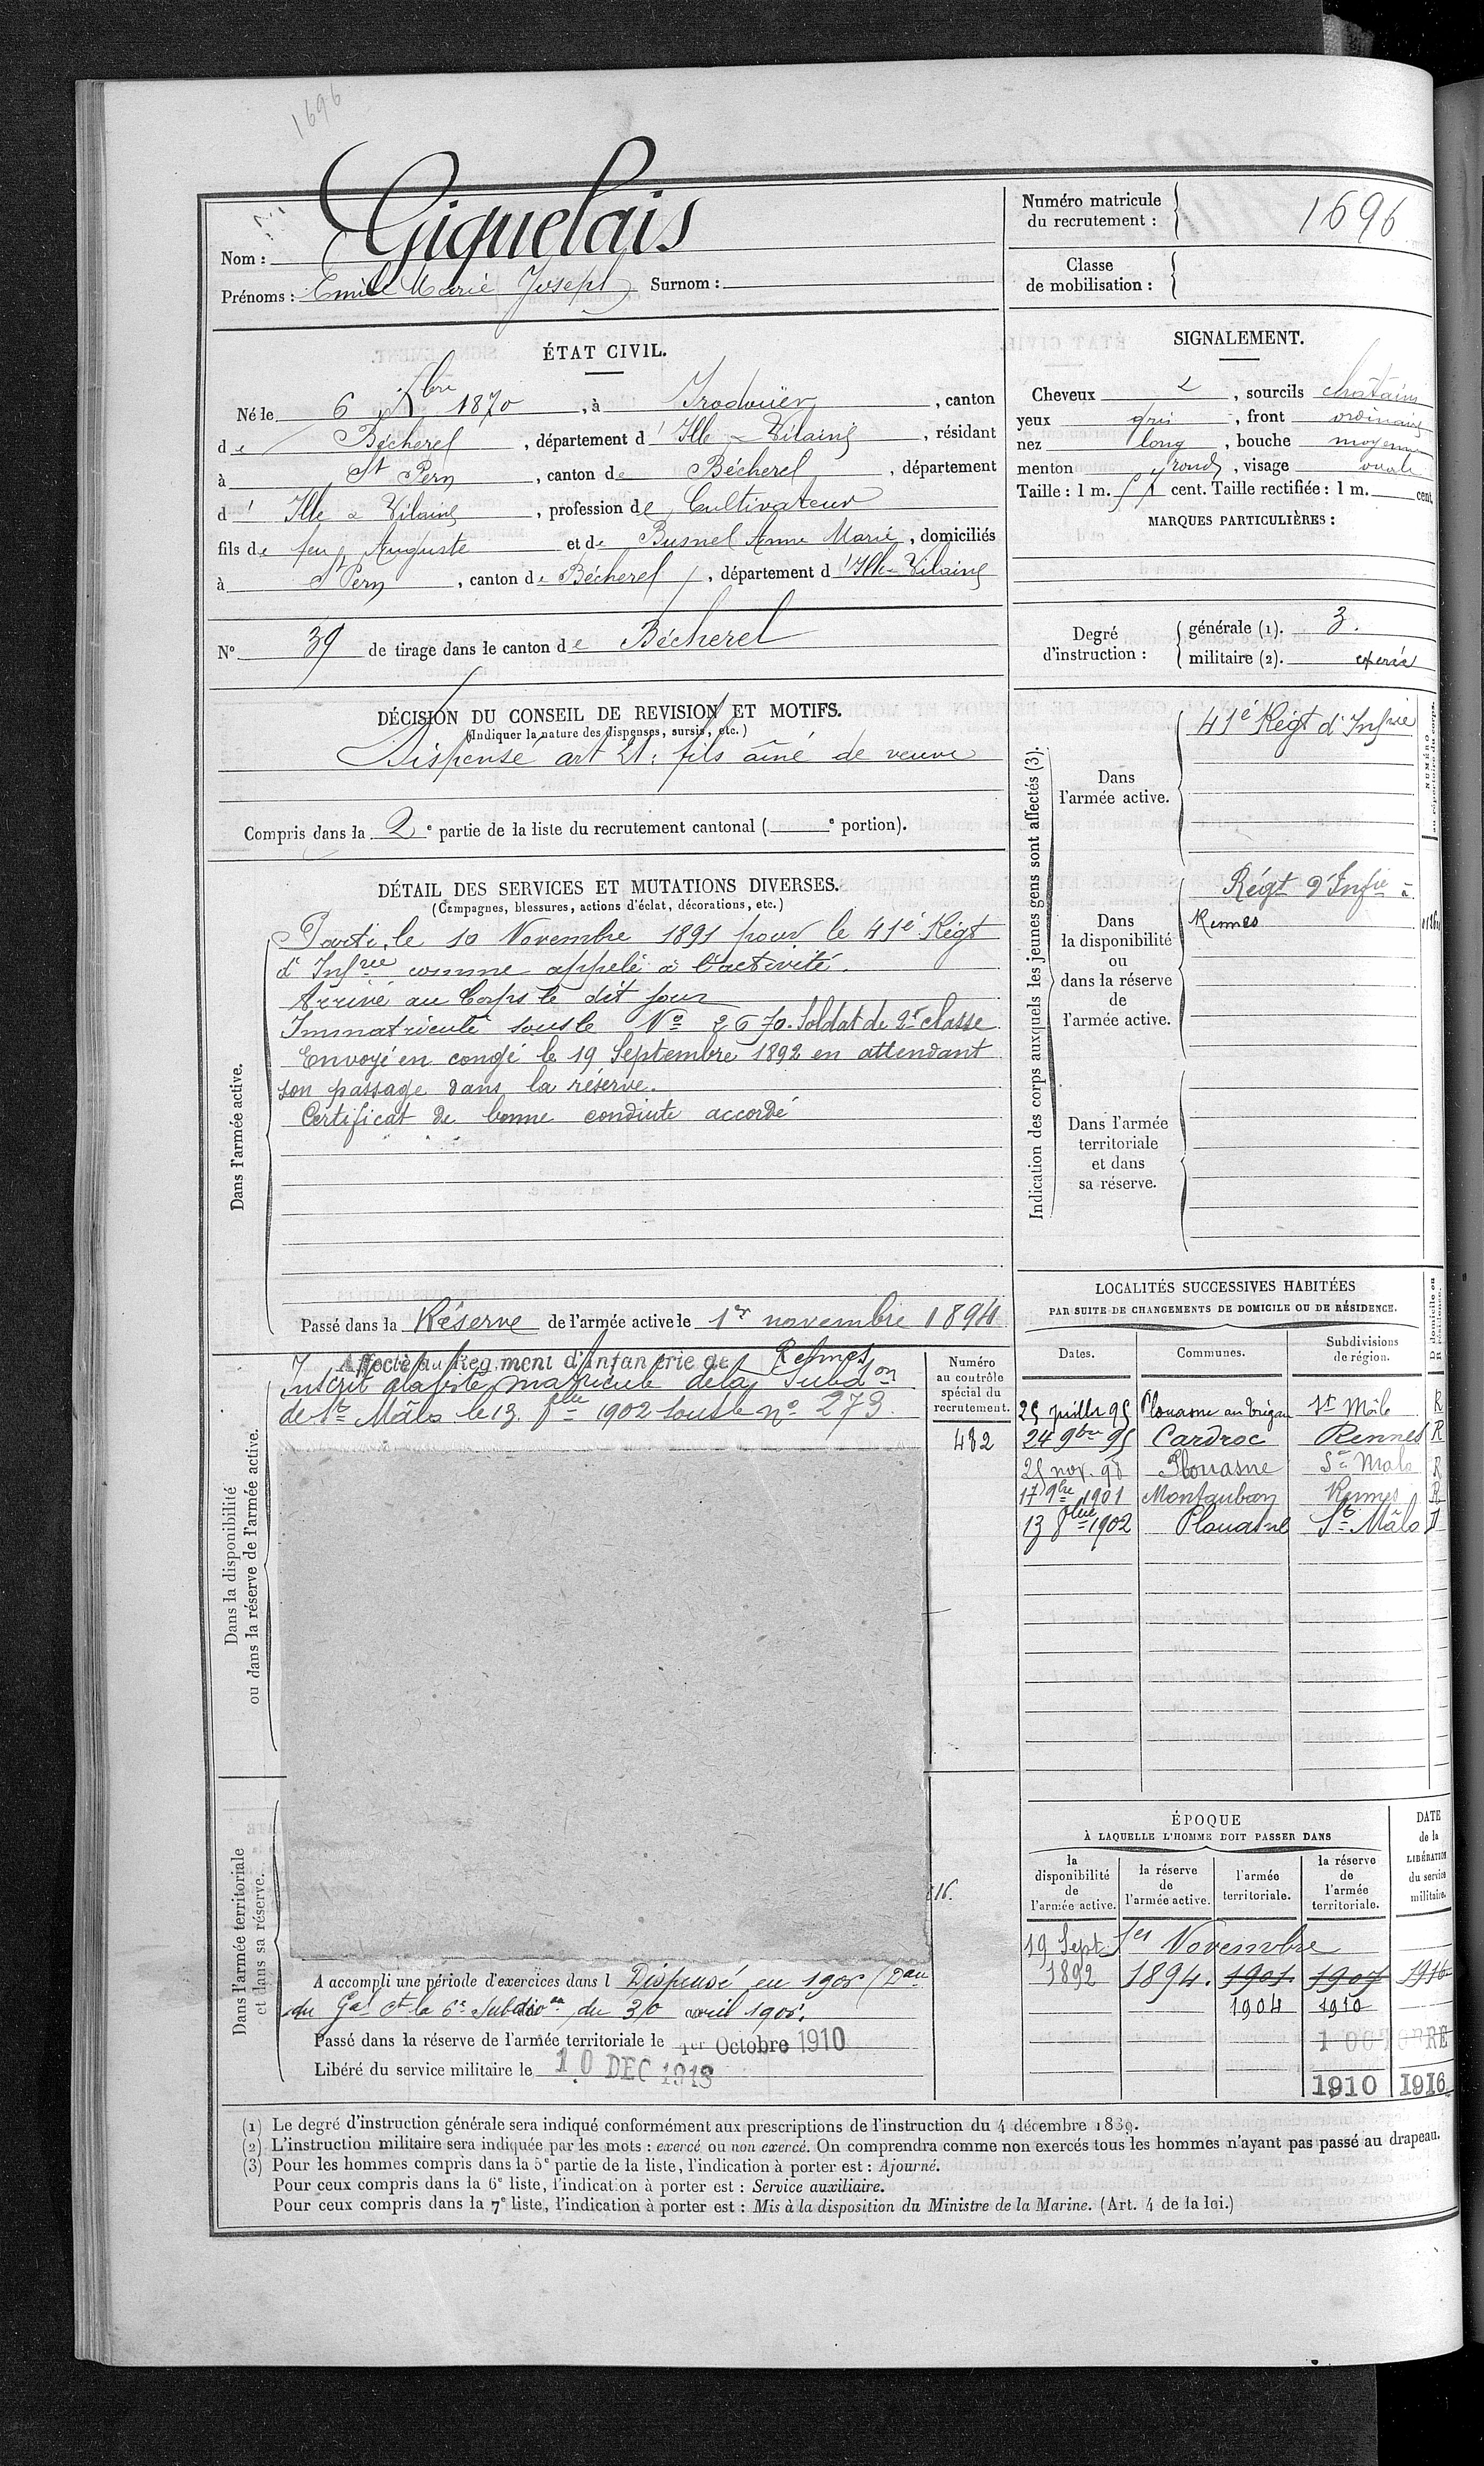 1696
Nom : Giquelais
Prénoms : Emile Marie Joseph Surnom :
Numéro matricule
du recrutement : 1696
Classe
de mobilisation :
ÉTAT CIVIL.
Né le 6 Xbre 1870, à Irodouër, canton
de Bécherel, département d'Ille & Vilaine, résidant
à St Pern, canton de Bécherel, département
d'Ille & Vilaine, profession de Cultivateur
fils de feu Auguste et de Busnel Anne Marie, domiciliés
à St Pern, canton de Bécherel, département d'Ille & Vilaine
N° 39 de tirage dans le canton de Bécherel
SIGNALEMENT.
Cheveux , sourcils chatains
yeux gris, front ordinaire
nez long, bouche moyenne
menton rond, visage ovale
Taille : 1 m. 51 cent. Taille rectifiée : 1 m. cent.
MARQUES PARTICULIÈRES :
Degré
d'instruction :
générale (1). 3.
militaire (2). exercé
DÉCISION DU CONSEIL DE REVISION ET MOTIFS.
(Indiquer la nature des dispenses, sursis, etc.)
Dispensé art 21 : fils aîné de veuve
Compris dans la 2e partie de la liste du recrutement cantonal ( e portion).
DÉTAIL DES SERVICES ET MUTATIONS DIVERSES.
(Campagnes, blessures, actions d'éclat, décorations, etc.)
Dans l'armée active.
Parti, le 10 Novembre 1891 pour le 41e Régt
d'Infrie comme appelé à l'activité.
Arrivé au Corps le dit jour
Immatriculé sous le No 2670. Soldat de 2e classe
Envoyé en congé le 19 Septembre 1892 en attendant
son passage dans la réserve.
Certificat de bonne conduite accordé
Passé dans la Réserve de l'armée active le 1er novembre 1894
Indication des corps auxquels les jeunes gens sont affectés (3).
NUMÉRO
au répertoire du corps.
Dans
l'armée active.
41e Régt d'Infrie
Dans
la disponibilité
ou
dans la réserve
de
l'armée active.
Régt d'Infie à
Rennes
Dans l'armée
territoriale
et dans
sa réserve.
Dans la disponibilité
ou dans la réserve de l'armée active.
Affecté au Régiment d'Infanterie de Rennes
Inscrit à la liste matricule de la Subdon
de St Mâlo le 13 8bre 1902 sous le no 273.
Numéro
au contrôle
spécial du
recrutement.
482
LOCALITÉS SUCCESSIVES HABITÉES
PAR SUITE DE CHANGEMENTS DE DOMICILE OU DE RÉSIDENCE.
D domicile ou
R résidence.
Dates. Communes. Subdivisions
de région.
25 juillet 95 Plouasne St Mâlo R
24 9bre 95 Cardroc Rennes R
25 nov. 98 Plouasne St Malo R
17 9bre 1901 Montauban Rennes R
13 8bre 1902 Plouasne St Mâlo D
Dans l'armée territoriale
et dans sa réserve.
16.
A accompli une période d'exercices dans l Dispensé en 1905 (
du Gal Ct la 6e Subdion du 30 avril 1905.
Passé dans la réserve de l'armée territoriale le 1er Octobre 1910
Libéré du service militaire le 10 DEC 1918
ÉPOQUE
À LAQUELLE L'HOMME DOIT PASSER DANS
DATE
de la
LIBÉRATION
du service
militaire.
la
disponibilité
de
l'armée active.
la réserve
de
l'armée active.
l'armée
territoriale.
la réserve
de
l'armée
territoriale.
19 Sept 1er Novembre
1892 1894. 1901. 1907 1916
1904 1910
1 OCTOBRE
1910 1916
(1) Le degré d'instruction générale sera indiqué conformément aux prescriptions de l'instruction du 4 décembre 1889.
(2) L'instruction militaire sera indiquée par les mots : exercé ou non exercé. On comprendra comme non exercés tous les hommes n'ayant pas passé au drapeau.
(3) Pour les hommes compris dans la 5e partie de la liste, l'indication à porter est : Ajourné.
Pour ceux compris dans la 6e liste, l'indication à porter est : Service auxiliaire.
Pour ceux compris dans la 7e liste, l'indication à porter est : Mis à la disposition du Ministre de la Marine. (Art. 4 de la loi.)